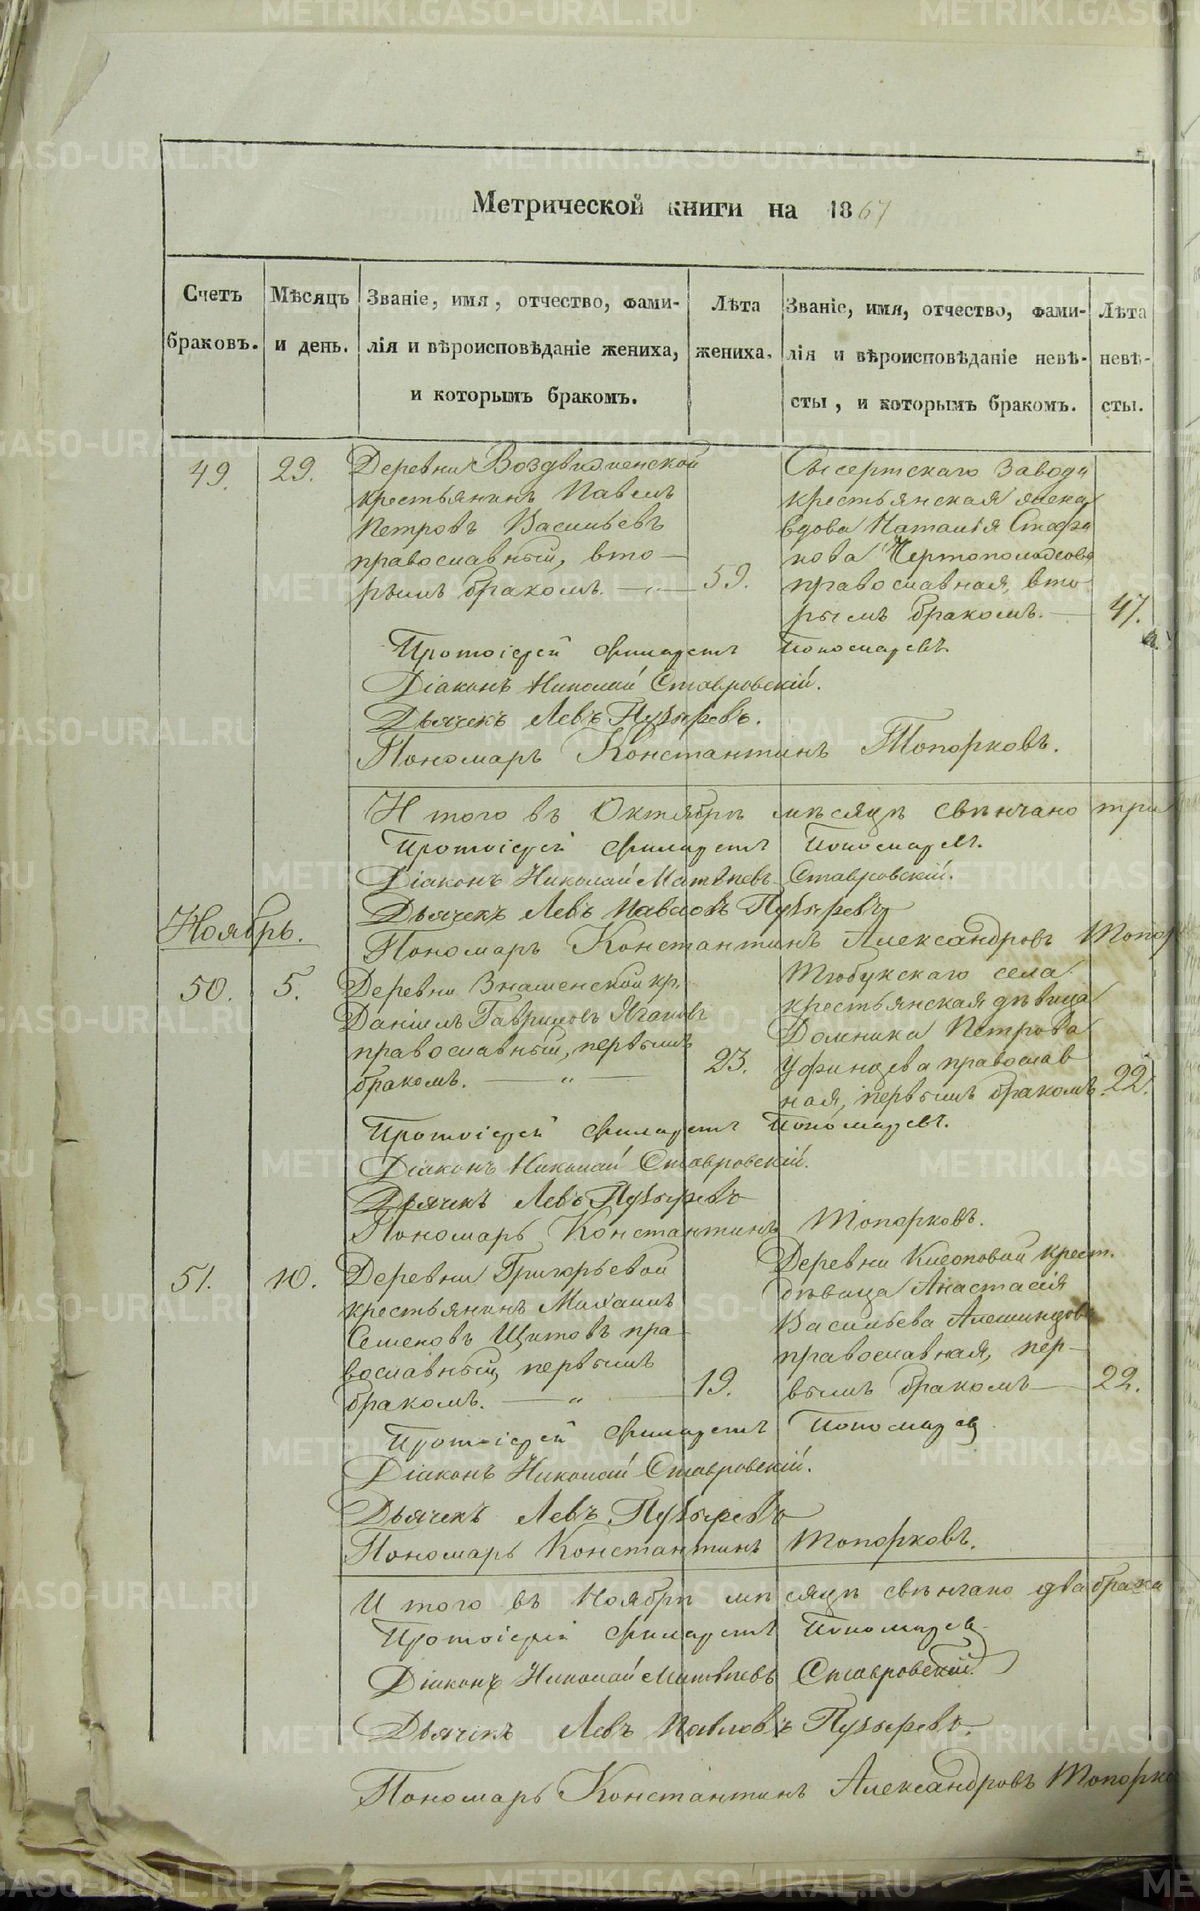 Метрической книги на 1867
Счетъ браковъ.
Мѣсяцъ и день.
Званіе, имя, отчество, фами-
лія и вѣроисповѣданіе жениха,
и которымъ бракомъ.
Лѣта
жениха.
Званіе, имя, отчество, фами-
лія и вѣроисповѣданіе невѣ-
сты, и которымъ бракомъ.
Лѣта
невѣ-
сты.
49. 29.
Деревни Воздвиженской
крестьянинъ Павелъ
Петровъ Васильевъ
православный, вто-
рымъ бракомъ. 59.
Сысертскаго завода
крестьянская
вдова Наталія Стефа
нова Чертополохова
православная, вто-
рымъ бракомъ. 47.
Протоіерей Филаретъ Пономаревъ.
Діаконъ Николай Ставровскій.
Дьячекъ Левъ Пузыревъ.
Пономарь Константинъ Топорковъ.
И того въ Октябрѣ мѣсяцѣ свѣнчано три
Протоіерей Филаретъ Пономаревъ.
Діаконъ Николай Матвѣевъ Ставровскій.
Дьячекъ Левъ Павловъ Пузыревъ
Ноябрь.
Пономарь Константинъ Александровъ Топор
50. 5.
Деревни Знаменской кр.
Даніилъ Гавриловъ
православный, первымъ
бракомъ. 23.
Тюбукскаго села
крестьянская дѣвица
Домника Петрова
Уфинцева православ
ная, первымъ бракомъ. 22.
Протоіерей Филаретъ Пономаревъ.
Діаконъ Николай Ставровскій.
Дьячекъ Левъ Пузыревъ
Пономарь Константинъ Топорковъ.
51. 10.
Деревни Григорьевой
крестьянинъ Михаилъ
Семеновъ Щитовъ пра
вославный, первымъ
бракомъ. 19.
Деревни Ключовой крест.
дѣвица Анастасія
Васильева
православная, пер-
вымъ бракомъ 22.
Протоіерей Филаретъ Пономарев
Діаконъ Николай Ставровскій.
Дьячекъ Левъ Пузыревъ
Пономарь Константинъ Топорковъ.
И того въ Ноябрѣ мѣсяцѣ свѣнчано два брака
Протоіерей Филаретъ Пономарев
Діаконъ Николай Матвѣевъ Ставровскій
Дьячекъ Левъ Павловъ Пузыревъ.
Пономарь Константинъ Александровъ Топорко
METRIKI.GASO-URAL.RU